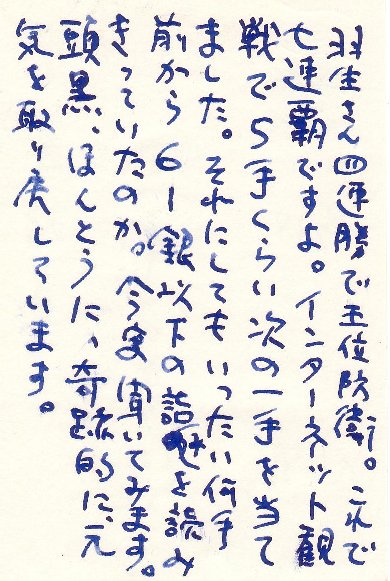 羽生さん四連勝で王位防衛。これで
七連覇ですよ。インターネット観
戦で5手くらい次の一手を当て
ました。それにしてもいったい何手
前から61銀以下の詰を読み
きっていたのか。今度聞いてみます。
頭黒、ほんとうに、奇跡的に、元
気を取り戻しています。